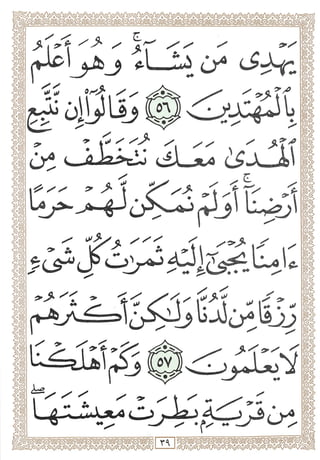 يَهْدِى مَن يَشَآءُ ۚ وَهُوَ أَعْلَمُ
بِٱلْمُهْتَدِينَ ٥٦ وَقَالُوٓا۟ إِن نَّتَّبِعِ
ٱلْهُدَىٰ مَعَكَ نُتَخَطَّفْ مِنْ
أَرْضِنَآ ۚ أَوَلَمْ نُمَكِّن لَّهُمْ حَرَمًا
ءَامِنًا يُجْبَىٰٓ إِلَيْهِ ثَمَرَٰتُ كُلِّ شَىْءٍ
رِّزْقًا مِّن لَّدُنَّا وَلَٰكِنَّ أَكْثَرَهُمْ
لَا يَعْلَمُونَ ٥٧ وَكَمْ أَهْلَكْنَا
مِن قَرْيَةٍۭ بَطِرَتْ مَعِيشَتَهَا ۖ
٣٩